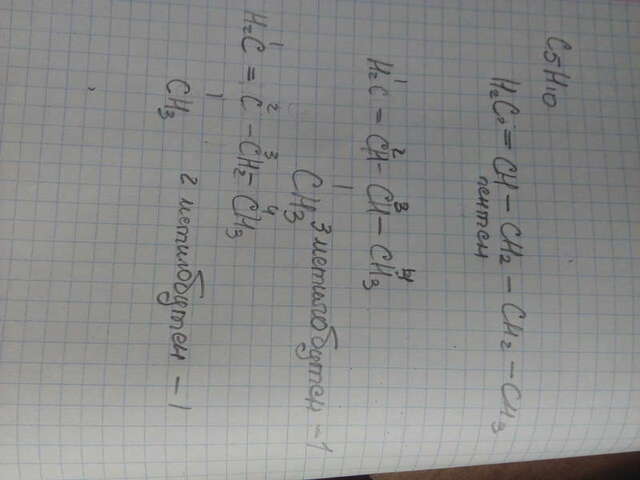 C5H10
H₂C = CH – CH₂ – CH₂ – CH₃
пентен
1 2 3 4
H₂C = CH – CH – CH₃
CH₃
3 метилбутен – 1
1 2 3 4
H₂C = C – CH₂ – CH₃
CH₃
2 метилбутен – 1